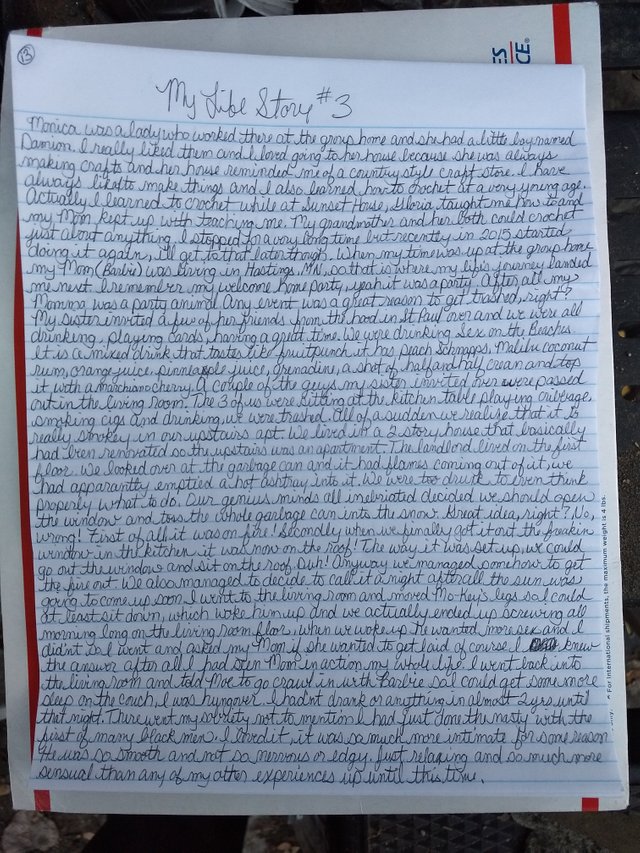 13
My Life Story #3
Monica was a lady who worked there at the group home and she had a little boy named
Damion. I really liked them and I loved going to her house because she was always
making crafts and her house reminded me of a country style craft store. I have
always liked to make things and I also learned how to crochet at a very young age.
Actually I learned to crochet while at Sunset House, Gloria taught me how to and
my Mom kept up with teaching me. My grandmother and her both could crochet
just about anything. I stopped for a very long time but recently in 2015 started
doing it again, I'll get to that later though. When my time was up at the group home
my Mom (Barbie) was living in Hastings, MN, so that is where my life's journey landed
me next. I remember my welcome home party, yeah it was a party. After all my
Momma was a party animal. Any event was a great reason to get trashed, right?
My sister invited a few of her friends from the hood in St Paul over and we were all
drinking, playing cards, having a great time. We were drinking Sex on the Beaches.
It is a mixed drink that tastes like fruitpunch, it has peach Schnapps, Malibu coconut
rum, orange juice, pinneapple juice, grenadine, a shot of half and half cream and top
it with a marchiano cherry. A couple of the guys my sister invited over were passed
out in the living room. The 3 of us were sitting at the kitchen table playing cribbage,
smoking cigs and drinking, we were trashed. All of a sudden we realize that it is
really smokey in our upstairs apt. We lived in a 2 story house that basically
had been renovated so the upstairs was an apartment. The landlord lived on the first
floor. We looked over at the garbage can and it had flames coming out of it, we
had apparantly emptied a hot ashtray into it. We were too drunk to even think
properly what to do. Our genius minds all inebriated decided we should open
the window and toss the whole garbage can into the snow. Great idea, right? No,
wrong! First of all it was on fire! Secondly when we finally got it out the freakin
window in the kitchen it was now on the roof! The way it was set up, we could
go out the window and sit on the roof. Duh! Anyway we managed somehow to get
the fire out. We also managed to decide to call it a night after all the sun was
going to come up soon. I went to the living room and moved Mo-Key's legs so I could
at least sit down, which woke him up and we actually ended up screwing all
morning long on the living room floor, when we woke up he wanted more sex and I
didn't so I went and asked my Mom if she wanted to get laid of course I knew
the answer after all I had seen Mom in action my whole life. I went back into
the living room and told Moe to go crawl in with Barbie so I could get some more
sleep on the couch, I was hungover. I hadn't drank or anything in almost 2 yrs until
that night. There went my sobriety not to mention I had just done the nasty with the
first of many black men. I loved it, it was so much more intimate for some reason
He was so smooth and not so nervous or edgy. Just relaxing and so much more
sensual than any of my other experiences up until this time.
For International shipments, the maximum weight is 4 lbs.